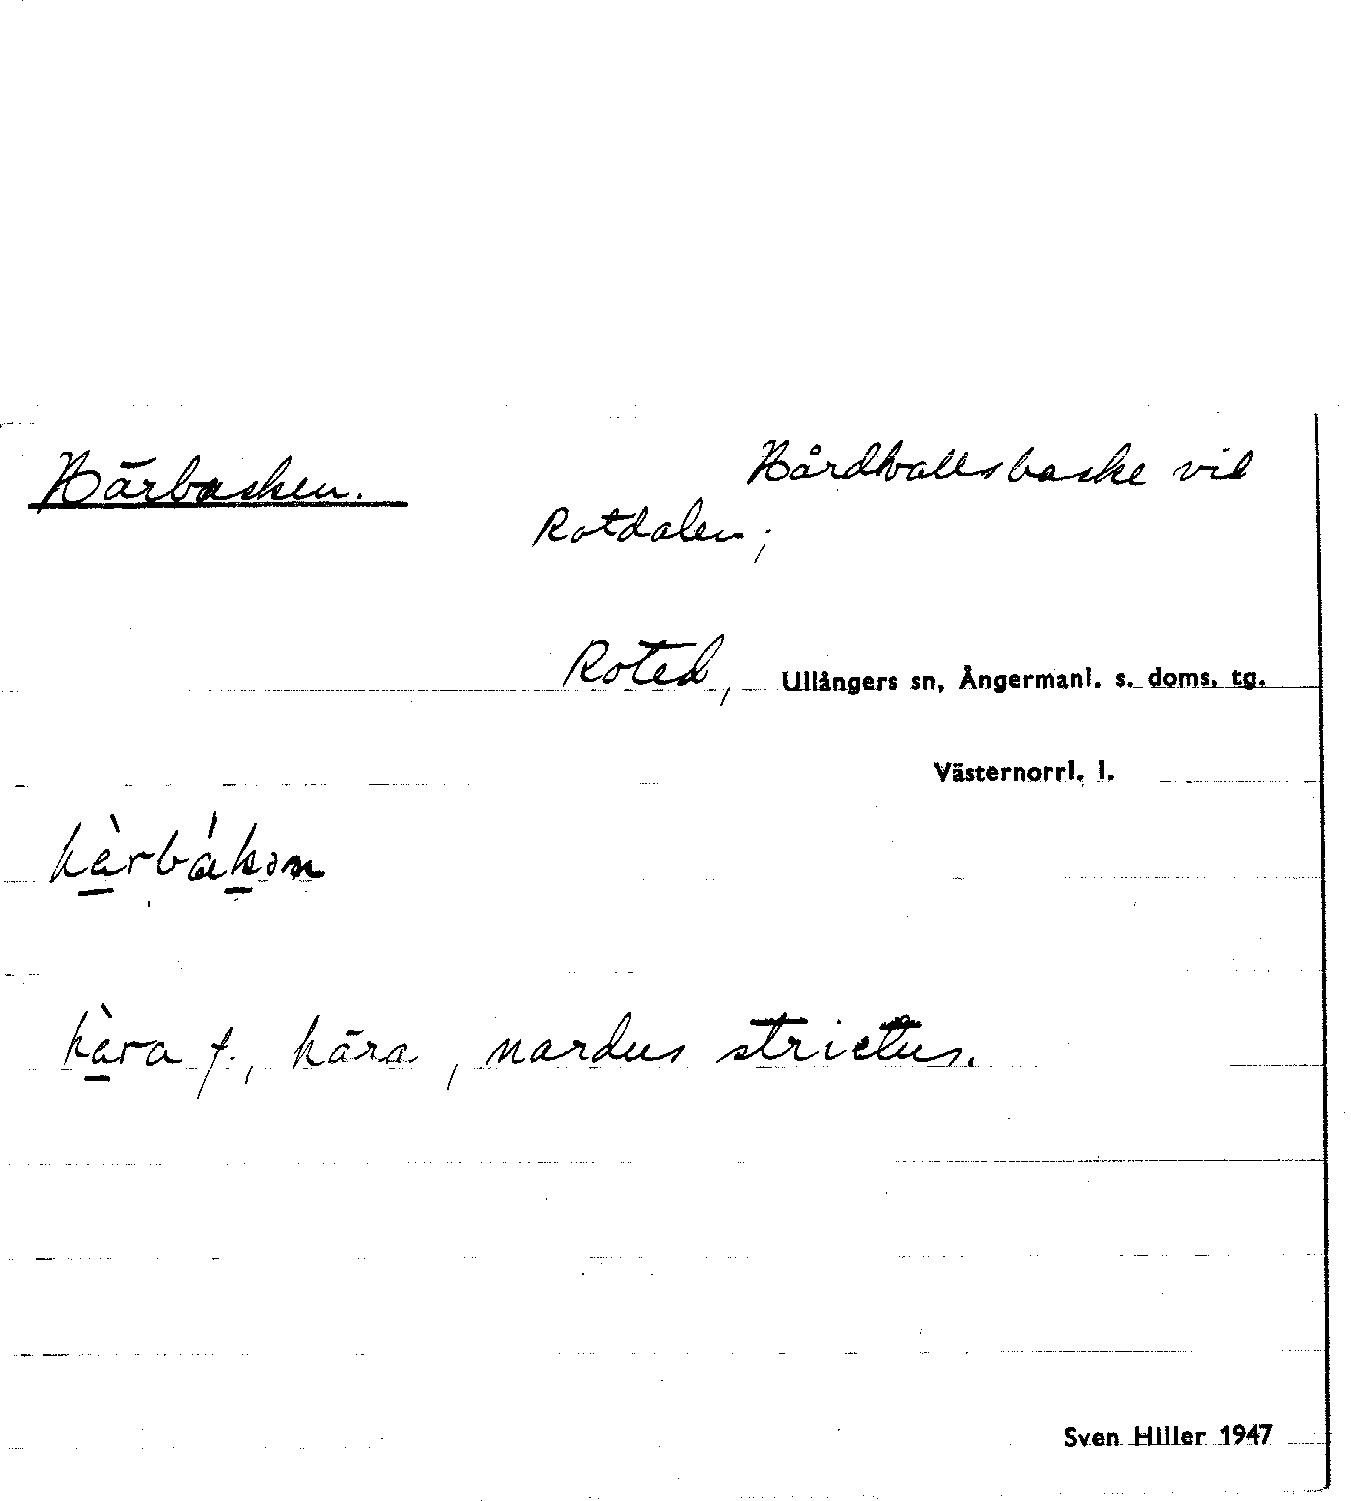 Härbasken.
Hårdvallsbaske vid
Rotdalen;
Roted, Ullångers sn, Ångermanl. s. doms. tg.
Västernorrl. l.
hära f., hära, nardus strictus.
Sven Hiller 1947